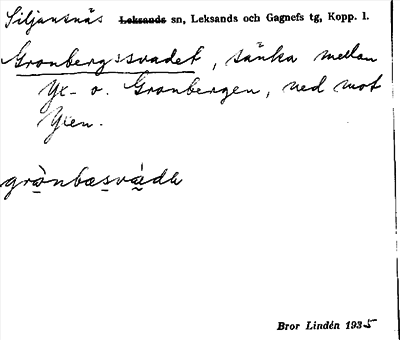 Siljansnäs Leksands sn, Leksands och Gagnefs tg, Kopp. l.
Gronbergssvadet, sänka mellan
Yx- o. Gronbergen, ned mot
Yxen.
grὰnbæsvὰdә
Bror Lindén 1935